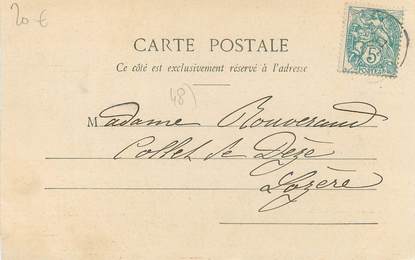 20 €
CARTE POSTALE
Ce côté est exclusivement réservé à l'adresse
48)
Madame Rouveraud
Collet de Dèze
Lozère
5